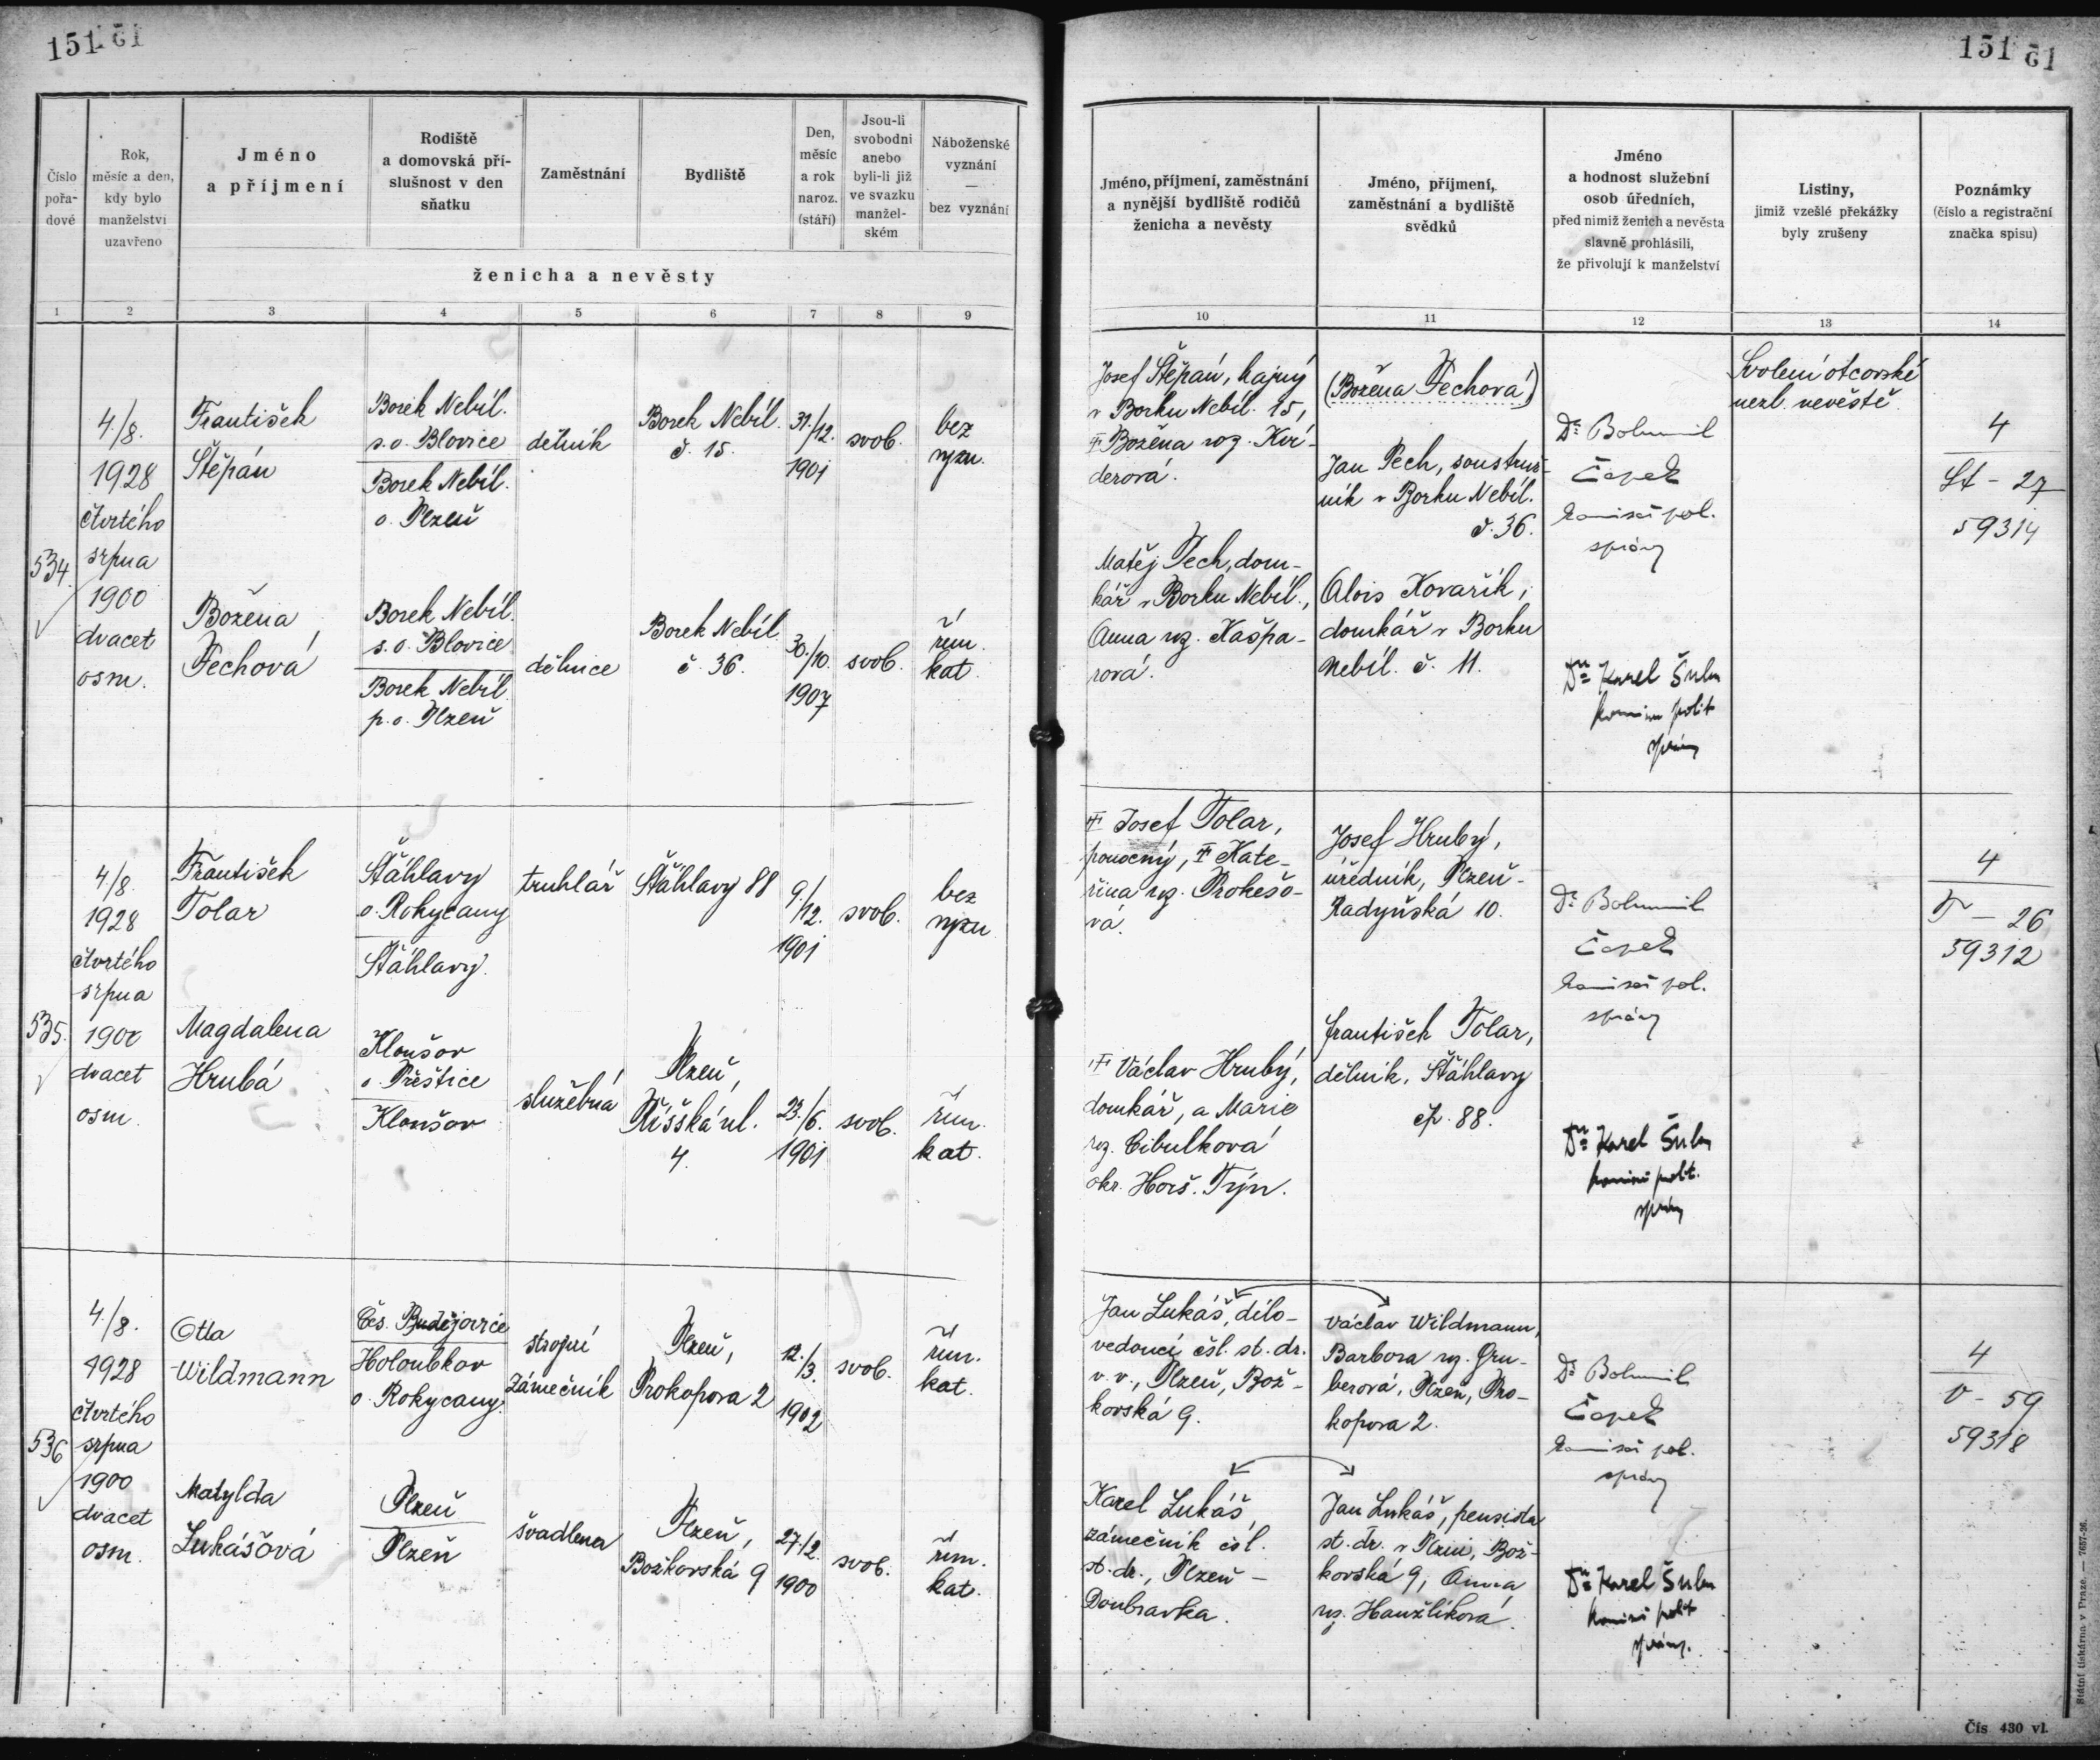 151 51
151 51
Číslo
pořa-
dové
Rok,
měsíc a den,
kdy bylo
manželství
uzavřeno
Jméno
a příjmení
Rodiště
a domovská pří-
slušnost v den
sňatku
Zaměstnání
Bydliště
Den,
měsíc
a rok
naroz.
(stáří)
Jsou-li
svobodni
anebo
byli-li již
ve svazku
manžel-
ském
Náboženské
vyznání
—
bez vyznání
ženicha a nevěsty
Jméno, příjmení, zaměstnání
a nynější bydliště rodičů
ženicha a nevěsty
Jméno, příjmení,
zaměstnání a bydliště
svědků
Jméno
a hodnost služební
osob úředních,
před nimiž ženich a nevěsta
slavně prohlásili,
že přivolují k manželství
Listiny,
jimiž vzešlé překážky
byly zrušeny
Poznámky
(číslo a registrační
značka spisu)
1 2 3 4 5 6 7 8 9
10 11 12 13 14
534.
4./8.
1928
čtvrtého
srpna
1900
dvacet
osm.
František
Štěpán
Borek Nebíl.
s.o. Blovice
Borek Nebíl.
o. Plzeň
dělník
Borek Nebíl.
č. 15.
31./12.
1901
svob.
bez
vyzn.
Božena
Pechová
Borek Nebíl.
s.o. Blovice
Borek Nebíl.
p.o. Plzeň
dělnice
Borek Nebíl.
č. 36.
30./10.
1907
svob.
řím.
kat.
Josef Štěpán, hajný
v Borku Nebíl. 15,
Božena roz.
derová.
Matěj Pech, dom-
kář v Borku Nebíl.,
Anna roz. Kašpa-
rová.
(Božena Pechová)
Jan Pech, soustruž-
ník v Borku Nebíl.
č. 36.
Alois Kovařík,
domkář v Borku
Nebíl. č. 11.
Dr. Bohumil
Čapek
komisař pol.
správy
Dr. Karel Šulc
komisař polit
správy
Svolení otcovské
nezl. nevěstě.
4
St - 27
59314
535.
4./8.
1928
čtvrtého
srpna
1900
dvacet
osm.
František
Tolar
Šťáhlavy
o. Rokycany
Šťáhlavy.
truhlář
Šťáhlavy 88
9./12.
1901
svob.
bez
vyzn
Magdalena
Hrubá
o. Přeštice
služebná
Plzeň,
Říšská ul.
4.
23./6.
1901
svob.
řím.
kat.
Josef Tolar,
ponocný, Kate-
řina roz. Prokešo-
vá.
Václav Hrubý,
domkář, a Marie
roz. Cibulková
okr. Horš. Týn.
Josef Hrubý,
úředník, Plzeň-
Radyňská 10.
František Tolar,
dělník, Šťáhlavy
čp. 88.
Dr. Bohumil
Čapek
komisař pol.
správy
Dr. Karel Šulc
komisař polit.
správy
4
T - 26
59312
536
4./8.
1928
čtvrtého
srpna
1900
dvacet
osm.
Otta
Wildmann
Čes. Budějovice
Holoubkov
o. Rokycany.
strojní
zámečník
Plzeň,
Prokopova 2
12./3.
1902
svob.
řím.
kat.
Matylda
Lukášová
Plzeň
Plzeň
švadlena
Plzeň,
Božkovská 9
27./2.
1900
svob.
řím.
kat.
Jan Lukáš, dílo-
vedoucí čsl. st. dr.
v. v., Plzeň, Bož-
kovská 9.
Karel Lukáš,
zámečník čsl.
st. dr., Plzeň -
Doubravka.
Václav Wildmann,
Barbora roz. Gru-
berová, Plzeň, Pro-
kopova 2.
Jan Lukáš, pensista
st. dr. v Plzni, Bož-
kovská 9, Anna
roz. Hanzlíková.
Dr. Bohumil
Čapek
komisař pol.
správy
Dr. Karel Šulc
komisař polit
správy.
4
V - 59
59318
Státní tiskárna v Praze. — 7657-26.
Čís 430 vl.